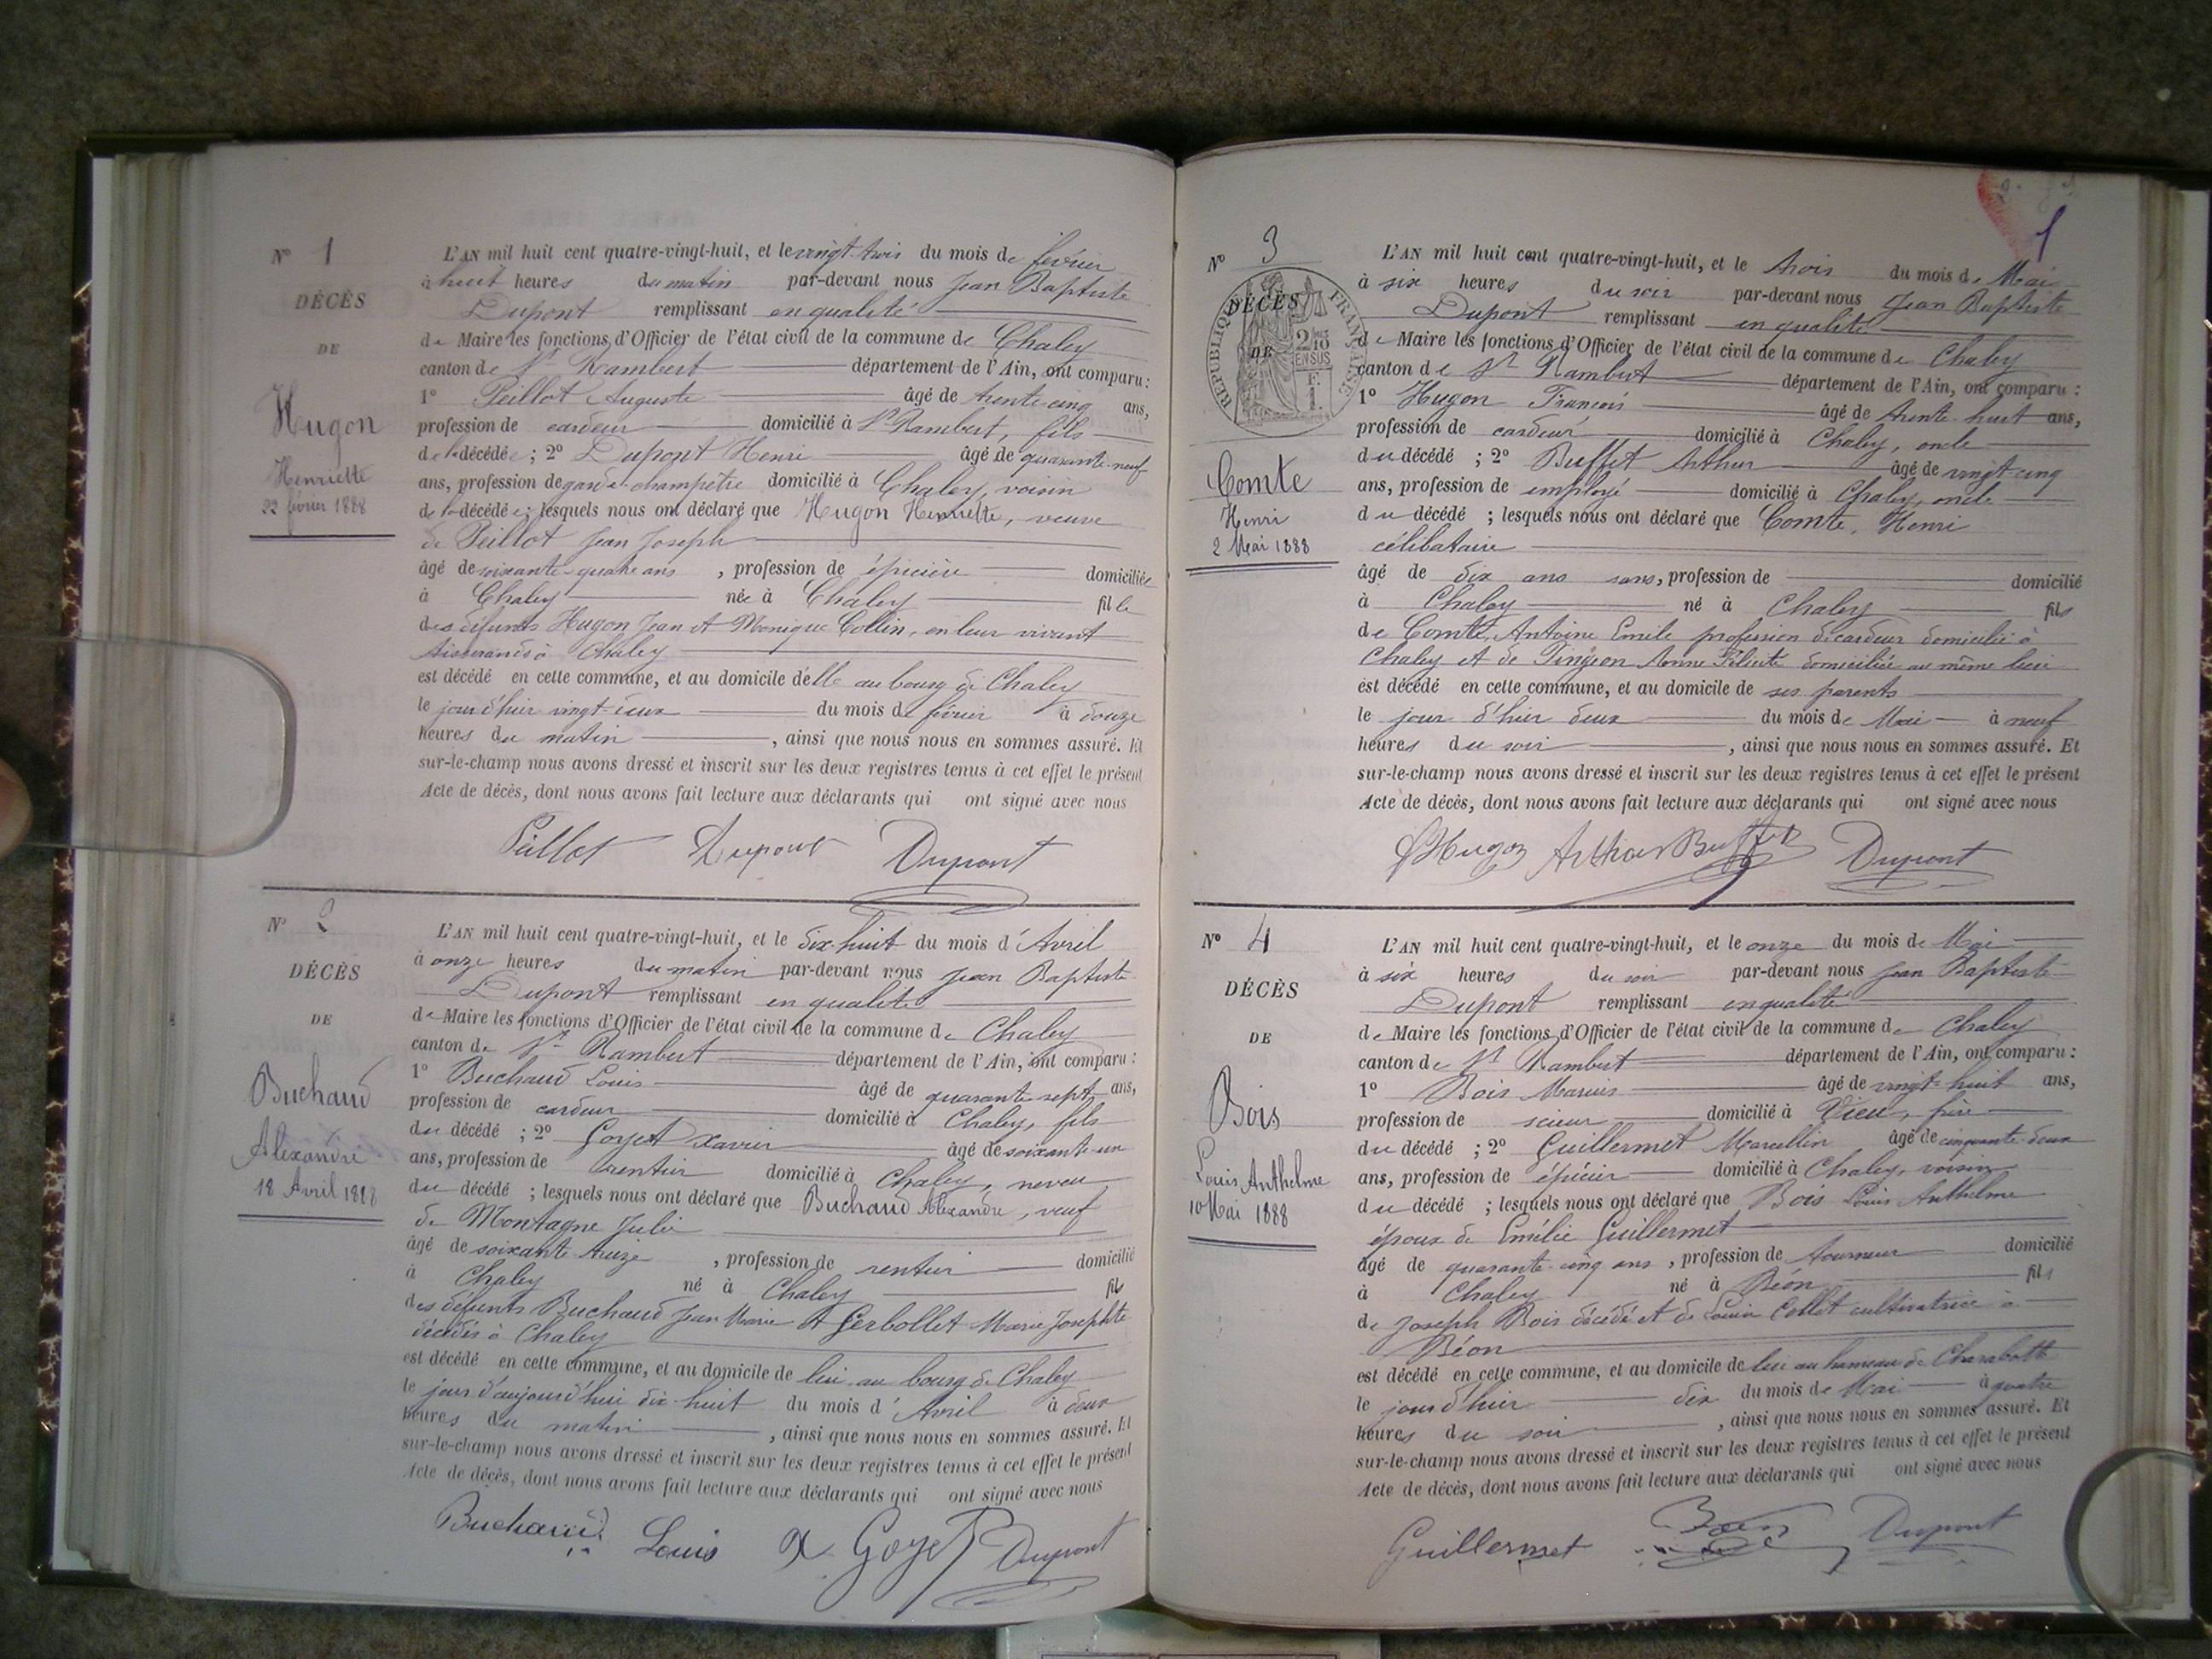 N° 1
DÉCÈS
DE
Hugon
Henriette
22 février 1888
L'AN mil huit cent quatre-vingt-huit, et le vingt-trois du mois de février
à huit heures du matin par-devant nous Jean Baptiste
Dupont remplissant en qualité
de Maire les fonctions d'Officier de l'état civil de la commune de Chaley
canton de St Rambert département de l'Ain, ont comparu :
1° Peillot Auguste âgé de trente-cinq ans,
profession de cardeur domicilié à St Rambert, fils
de la décédée ; 2° Dupont Henri âgé de quarante-neuf
ans, profession de garde-champêtre domicilié à Chaley, voisin
de la décédée ; lesquels nous ont déclaré que Hugon Henriette, veuve
de Peillot Jean Joseph
âgé de soixante-quatre ans , profession de épicière domiciliée
à Chaley née à Chaley fille
des défunts Hugon Jean et Monique Collin, en leur vivant
tisserands à Chaley
est décédé en cette commune, et au domicile d'elle au bourg de Chaley
le jour d'hier vingt-deux du mois de février à douze
heures du matin , ainsi que nous nous en sommes assuré. Et
sur-le-champ nous avons dressé et inscrit sur les deux registres tenus à cet effet le présent
Acte de décès, dont nous avons fait lecture aux déclarants qui ont signé avec nous
Peillot Dupont Dupont
N° 2
DÉCÈS
DE
Buchaud
Alexandre
18 Avril 1888
L'AN mil huit cent quatre-vingt-huit, et le dix-huit du mois d'Avril
à onze heures du matin par-devant nous Jean Baptiste
Dupont remplissant en qualité
de Maire les fonctions d'Officier de l'état civil de la commune de Chaley
canton de St Rambert département de l'Ain, ont comparu :
1° Buchaud Louis âgé de quarante-sept ans,
profession de cardeur domicilié à Chaley, fils
du décédé ; 2° Goyet Xavier âgé de soixante-un
ans, profession de rentier domicilié à Chaley, neveu
du décédé ; lesquels nous ont déclaré que Buchaud Alexandre, veuf
de Montagne Julie
âgé de soixante-treize , profession de rentier domicilié
à Chaley né à Chaley fils
des défunts Buchaud Jean Marie et Gerbollet Marie Josephte
décédés à Chaley
est décédé en cette commune, et au domicile de lui au bourg de Chaley
le jour d'aujourd'hui dix-huit du mois d'Avril à deux
heures du matin , ainsi que nous nous en sommes assuré. Et
sur-le-champ nous avons dressé et inscrit sur les deux registres tenus à cet effet le présent
Acte de décès, dont nous avons fait lecture aux déclarants qui ont signé avec nous
Buchaud Louis X Goyet Dupont
1
N° 3
DÉCÈS
DE
RÉPUBLIQUE FRANÇAISE
2/10 EN SUS
F.
1.
Comte
Henri
2 Mai 1888
L'AN mil huit cent quatre-vingt-huit, et le trois du mois de Mai
à six heures du soir par-devant nous Jean Baptiste
Dupont remplissant en qualité
de Maire les fonctions d'Officier de l'état civil de la commune de Chaley
canton de St Rambert département de l'Ain, ont comparu :
1° Hugon François âgé de trente-huit ans,
profession de cardeur domicilié à Chaley, oncle
du décédé ; 2° Buffet Arthur âgé de vingt-cinq
ans, profession de employé domicilié à Chaley, oncle
du décédé ; lesquels nous ont déclaré que Comte, Henri
célibataire
âgé de dix ans sans, profession de domicilié
à Chaley né à Chaley fils
de Comte, Antoine Emile profession de cardeur domicilié à
Chaley et de Tingeon Anne Félicité domiciliée au même lieu
est décédé en cette commune, et au domicile de ses parents
le jour d'hier deux du mois de Mai à neuf
heures du soir , ainsi que nous nous en sommes assuré. Et
sur-le-champ nous avons dressé et inscrit sur les deux registres tenus à cet effet le présent
Acte de décès, dont nous avons fait lecture aux déclarants qui ont signé avec nous
Hugon Arthur Buffet Dupont
N° 4
DÉCÈS
DE
Bois
Louis Anthelme
10 Mai 1888
L'AN mil huit cent quatre-vingt-huit, et le onze du mois de Mai
à six heures du soir par-devant nous Jean Baptiste
Dupont remplissant en qualité
de Maire les fonctions d'Officier de l'état civil de la commune de Chaley
canton de St Rambert département de l'Ain, ont comparu :
1° Bois Marius âgé de vingt-huit ans,
profession de scieur domicilié à Vieu, frère
du décédé ; 2° Guillermet Marcellin âgé de cinquante-deux
ans, profession de épicier domicilié à Chaley, voisin
du décédé ; lesquels nous ont déclaré que Bois Louis Anthelme
époux de Emélie Guillermet
âgé de quarante-cinq ans , profession de tourneur domicilié
à Chaley né à Béon fils
de Joseph Bois décédé et de Louise Collet cultivatrice à
Béon
est décédé en cette commune, et au domicile de lui au hameau de Charabotte
le jour d'hier dix du mois de Mai à quatre
heures du soir , ainsi que nous nous en sommes assuré. Et
sur-le-champ nous avons dressé et inscrit sur les deux registres tenus à cet effet le présent
Acte de décès, dont nous avons fait lecture aux déclarants qui ont signé avec nous
Guillermet Bois Dupont